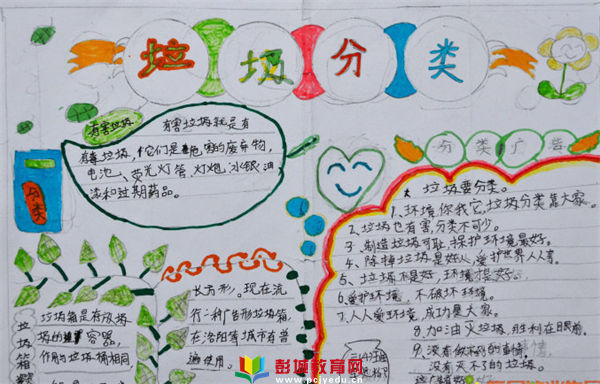 垃圾分类
有害垃圾
有害垃圾就是有
毒垃圾,它们是危害的废弃物,
电池、荧光灯管、灯炮、水银、油
漆和过期药品。
分类
分类广告
垃圾要分类。
1、环境,你我它,垃圾分类靠大家。
2、垃圾也有害,分类不可少。
3、制造垃圾可耻,保护环境最好。
4、除掉垃圾是好人,爱护世界人人喜。
5、垃圾不是好,环境是好。
6、爱护环境,不破坏环境。
7、人人爱环境,成功是大家。
8、加油灭垃圾,胜利在目前。
9、没有做不到的事情,
没有灭不了的垃圾。
垃圾箱
垃圾箱是有放垃
圾的容器,
作用与垃圾桶相同
长方形。现在流
行一种广告形垃圾箱,
在洛阳等城市有普
遍使用。
彭城教育网
www.pcjyedu.cn